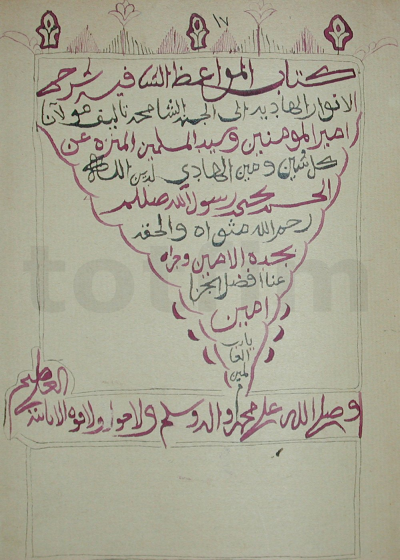 ١٧
كتاب المواعظ الشافية لشرحي
الانوار الهادية الى الجنة تاليف مولانا
امير المومنين وسيد المسلمين المنزه عن
كل شين ومين الهادي لدين الله
يحيى رسول الله صللم
رحم الله مثواه والحقه
بجده الامين وجزاه
عنا افضل الجزا
امين
يا رب
العا
لمين
وصلى الله على محمد واله وسلم ولا حول ولا قوة الا بالله
العظيم
totfim